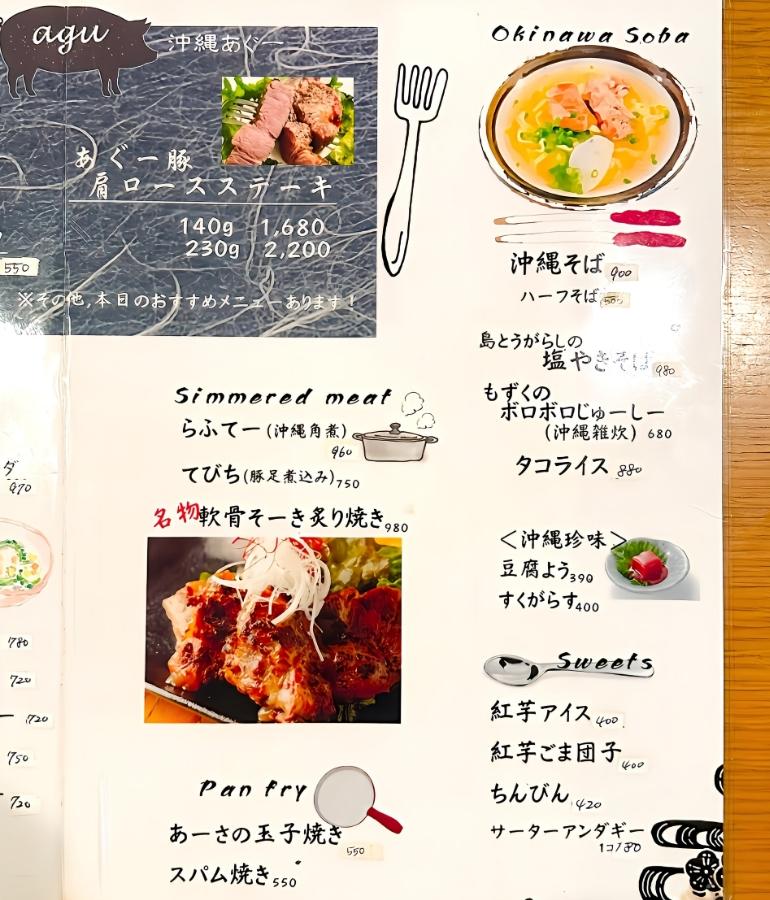 agu
沖縄あぐー
あぐー豚
肩ロースステーキ
140g 1,680
230g 2,200
550
※その他,本日のおすすめメニューあります!
ダ
970
780
720
ー 720
750
720
Simmered meat
らふてー(沖縄角煮)
960
てびち(豚足煮込み)750
名物軟骨そーき炙り焼き980
Pan fry
あーさの玉子焼き
550
スパム焼き550
Okinawa Soba
沖縄そば 900
ハーフそば 500
島とうがらしの
塩やきそば 980
もずくの
ボロボロじゅーしー
(沖縄雑炊) 680
タコライス 880
<沖縄珍味>
豆腐よう390
すくがらす400
Sweets
紅芋アイス 400
紅芋ごま団子
400
ちんびん 420
サーターアンダギー
1コ180